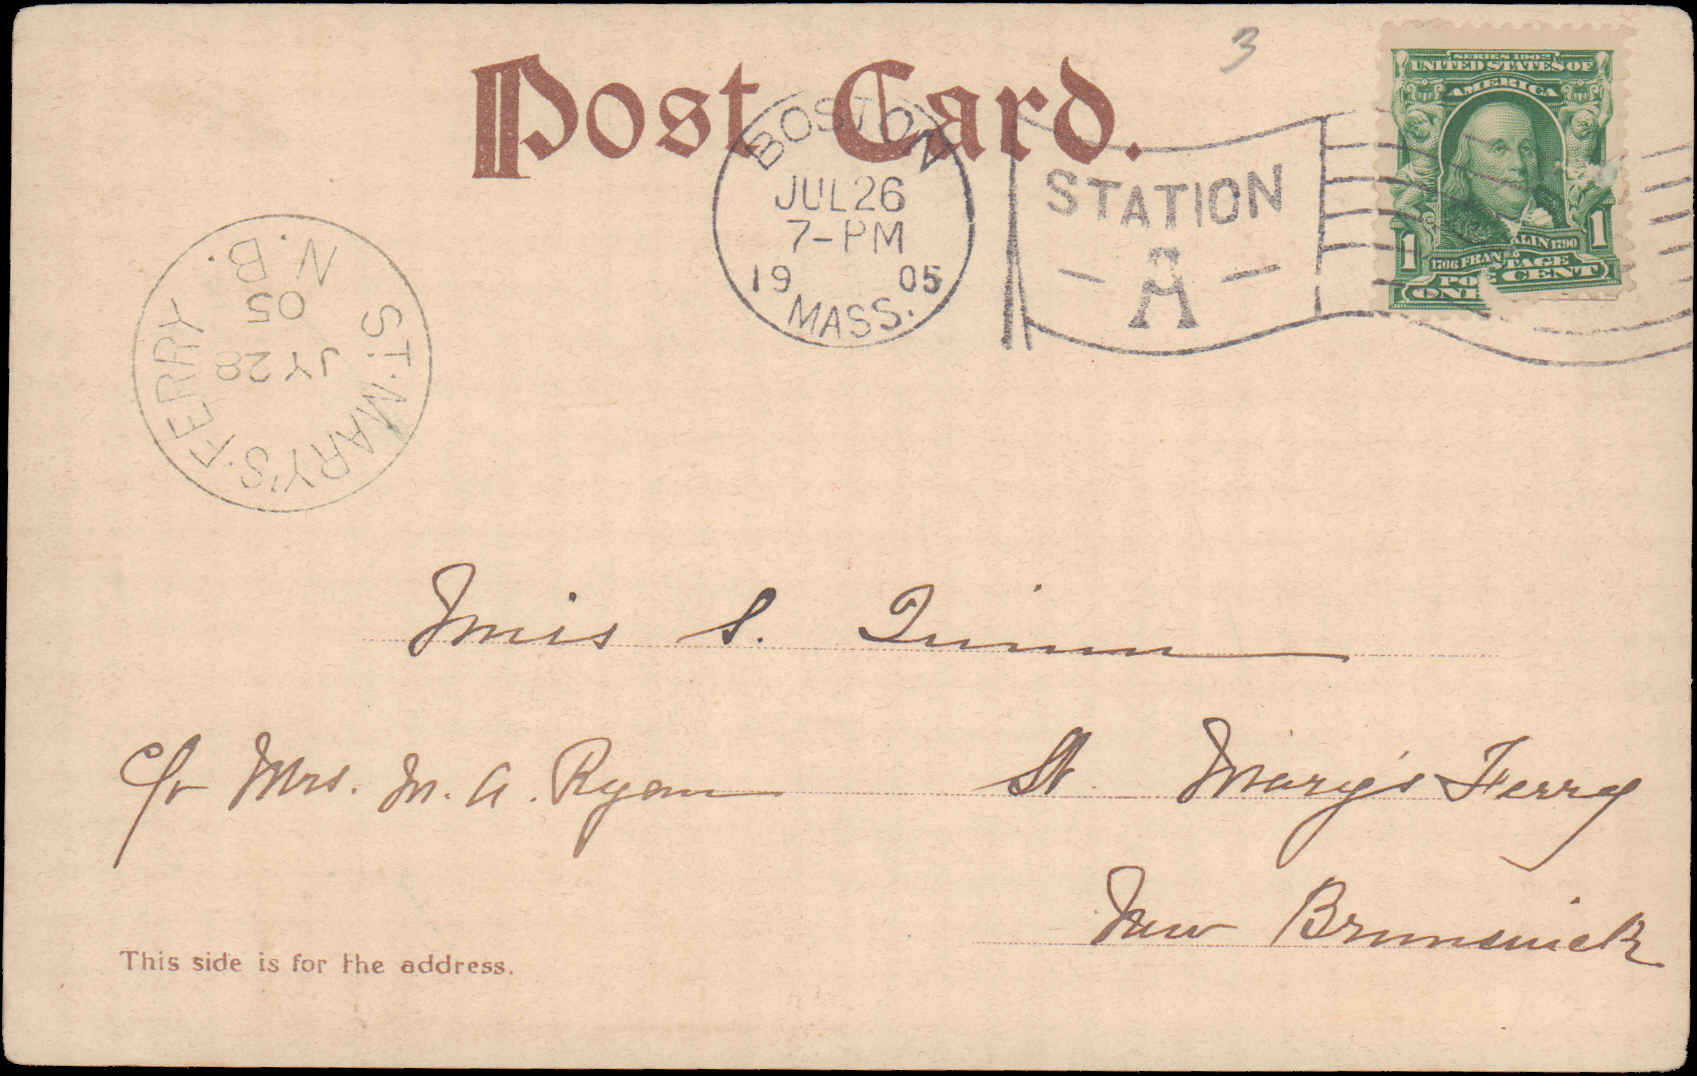 3
Post Card.
SERIES 1902
UNITED STATES OF
AMERICA
1706 FRANKLIN 1790
POSTAGE
1 ONE CENT 1
BOSTON
JUL 26
7-PM
19 05
MASS.
STATION
A
ST. MARY'S FERRY
JY 28
05
N.B.
Miss S. Quinn
c/o Mrs. M. A. Ryan St. Mary's Ferry
New Brunswick
This side is for the address.